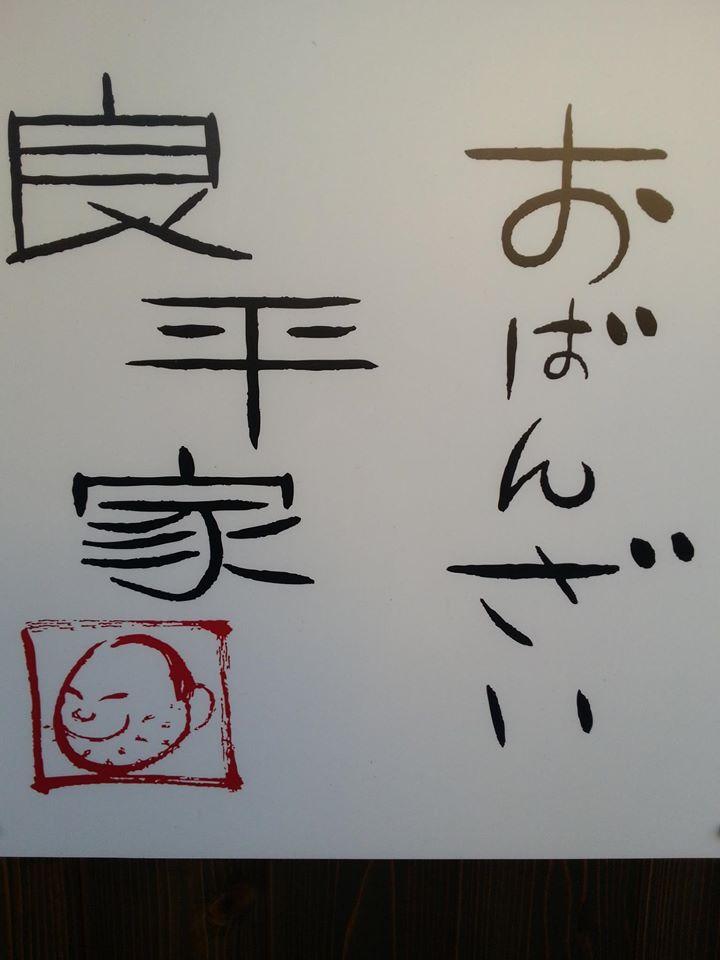 おばんざい
良平家